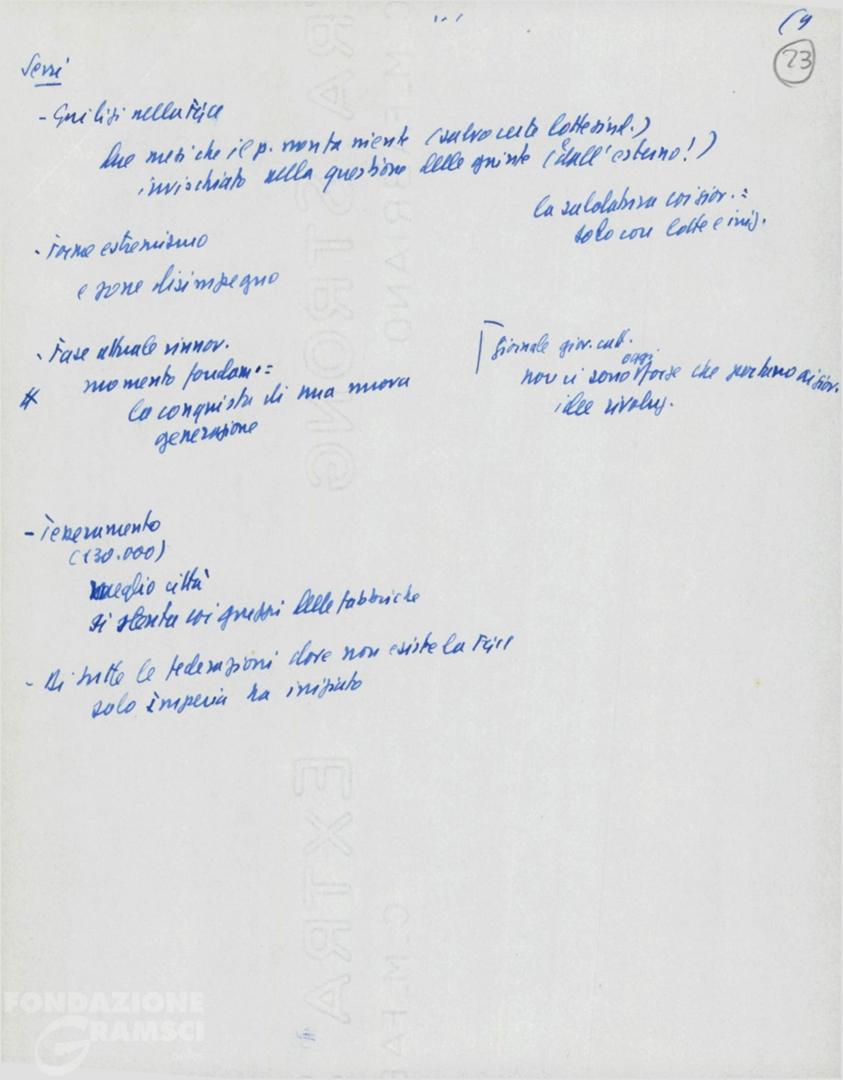 (9
23
Serri
- Qui lisi nella Fgci
due mesi che il p. non fa niente (salvo certe lotte sind.)
invischiato nella questione delle giunte (dall'esterno!)
la saldatura coi giov.:
solo con lotte e iniz.
- Forme estremismo
e zone disimpegno
- Fase attuale rinnov.
momento fondam.:
la conquista di una nuova
generazione
Giornale giov. catt.
oggi
non ci sono forze che portano ai giov.
idee rivoluz.
- Tesseramento
(130.000)
meglio città
si stenta coi gruppi delle fabbriche
- Di tutte le federazioni dove non esiste la Fgci
solo Imperia ha iniziato
FONDAZIONE
GRAMSCI
EXTRA STRONG
C.M. FABRIANO
EXTRA
C.M. FA